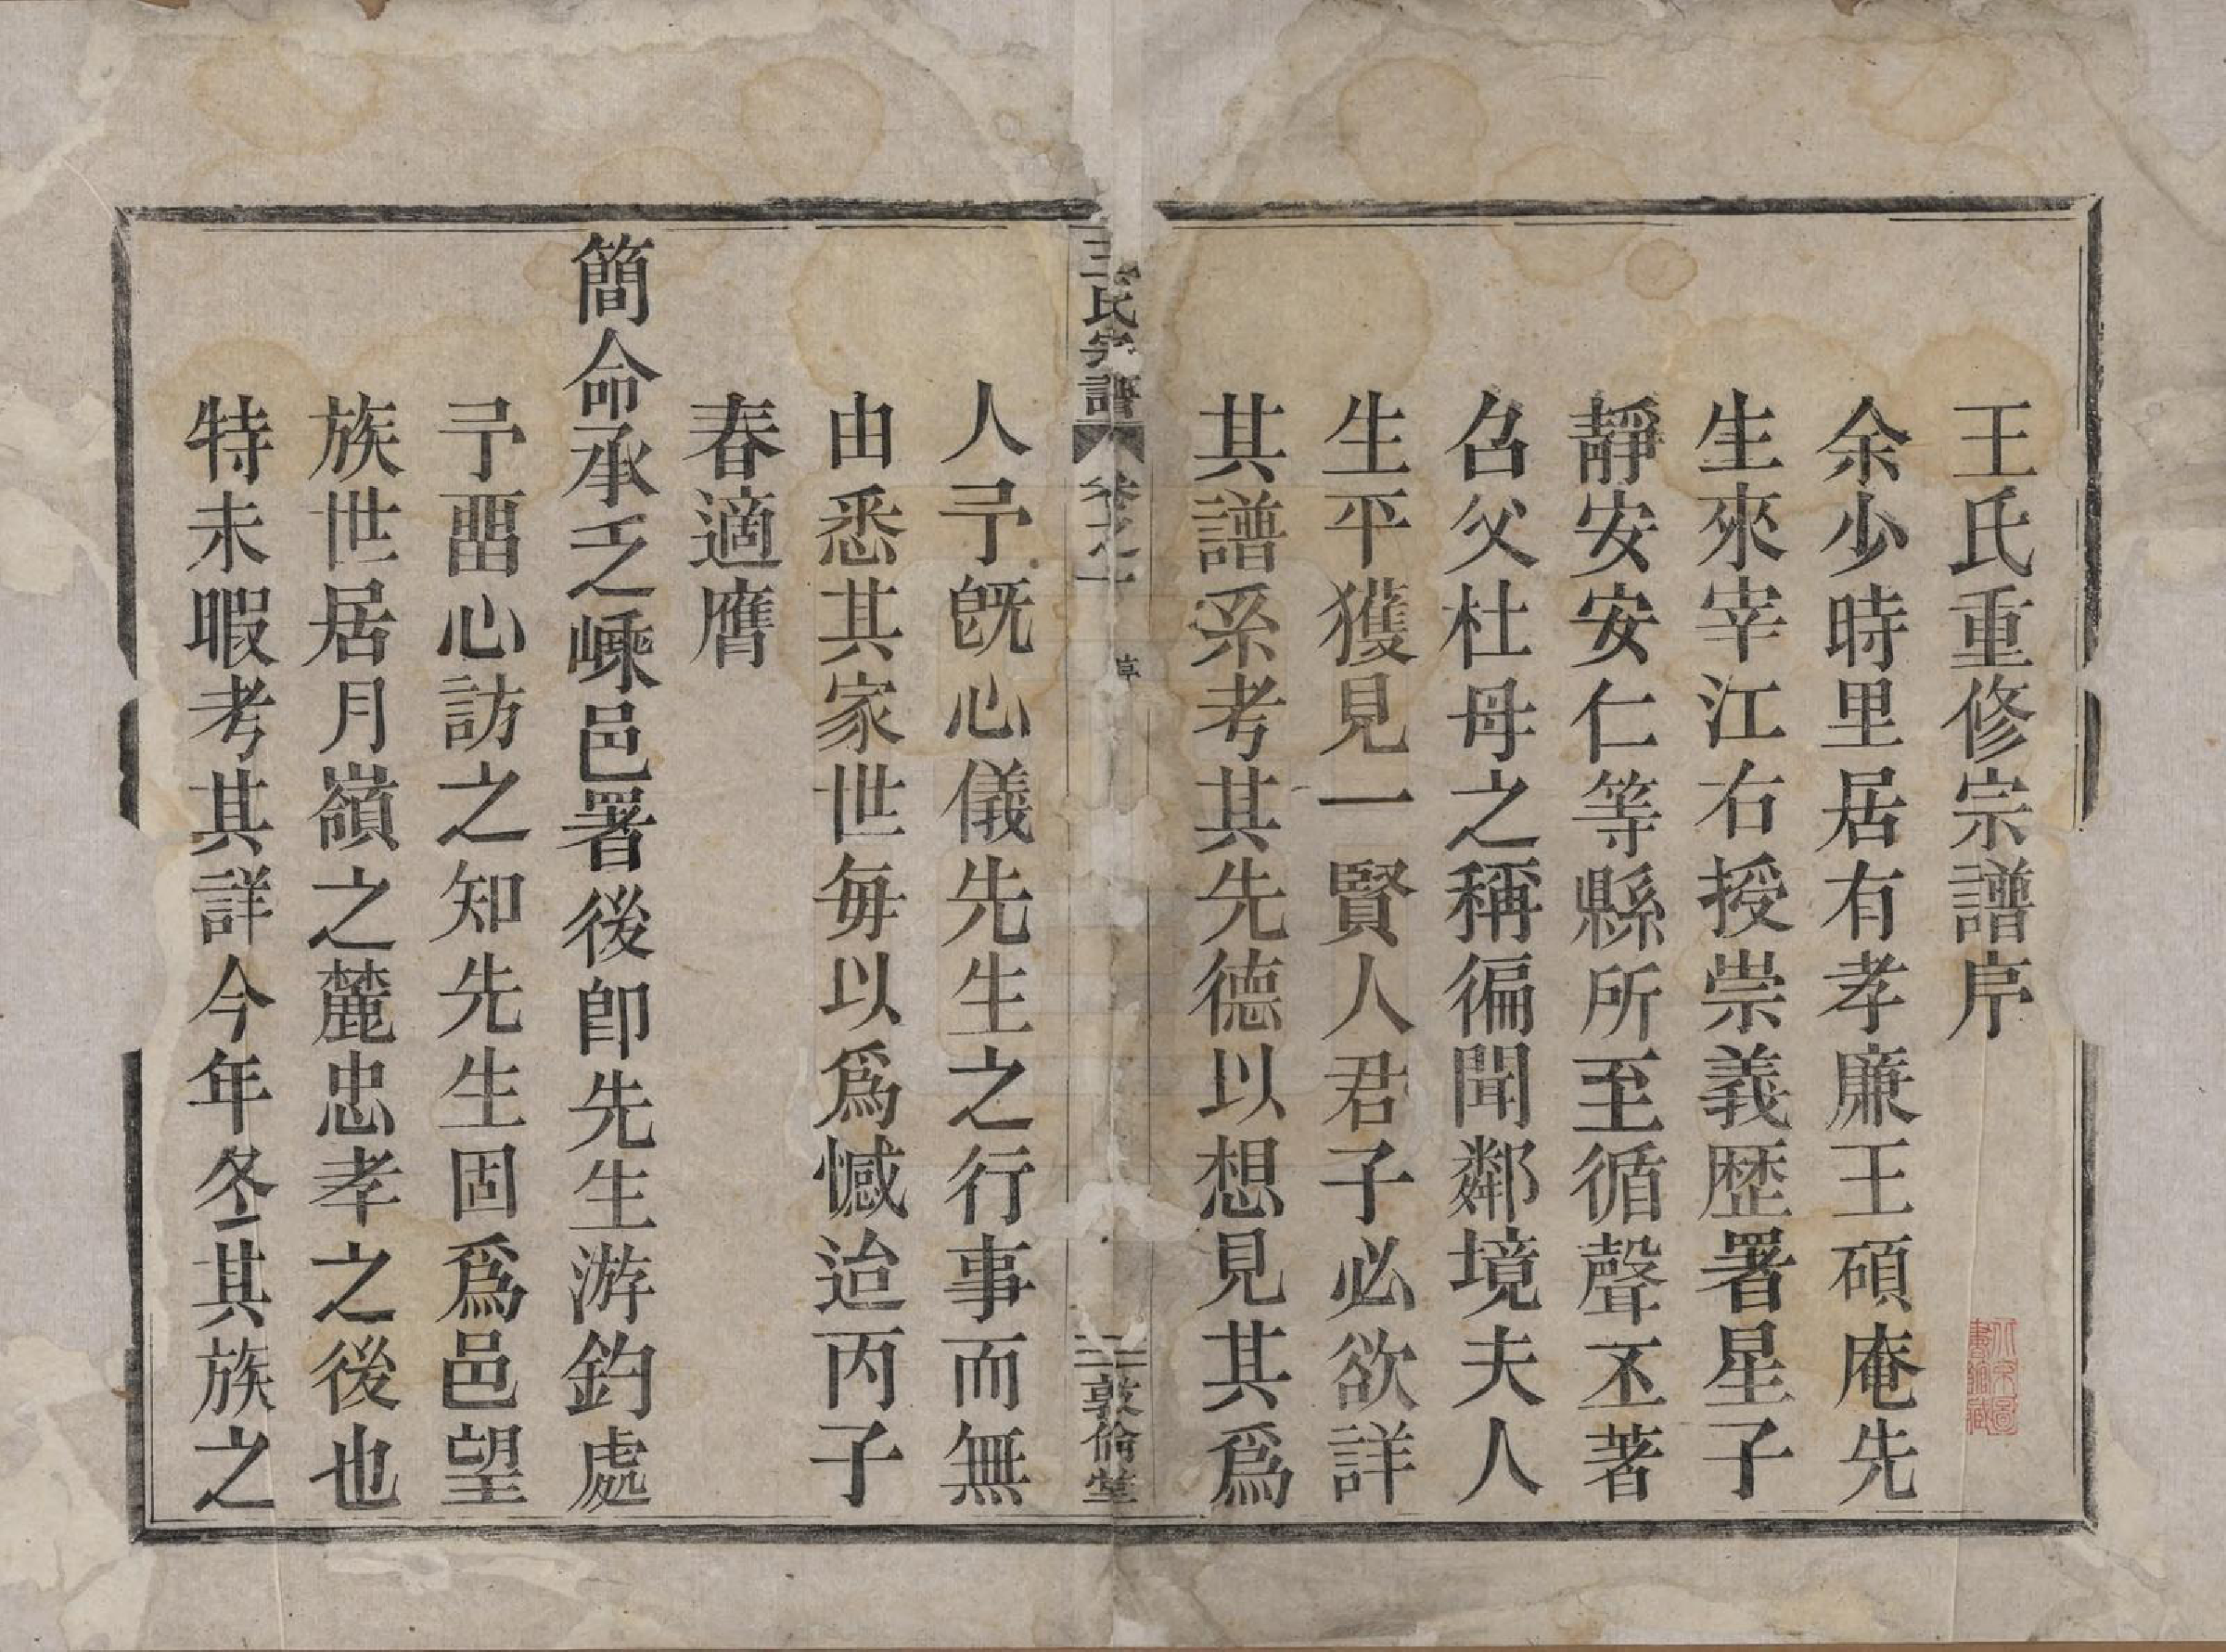 王氏重修宗譜序
余少時里居有孝廉王碩庵先
生來宰江右授崇義歷署星子
靜安安仁等縣所至循聲丕著
召父杜母之稱徧聞鄰境夫人
生平獲見一賢人君子必欲詳
其譜系考其先德以想見其爲
王氏宗譜
卷之一
序
敦倫堂
人予旣心儀先生之行事而無
由悉其家世每以爲憾迨丙子
春適膺
簡命承乏嵊邑署後卽先生游釣處
予畱心訪之知先生固爲邑望
族世居月嶺之麓忠孝之後也
特未暇考其詳今年冬其族之